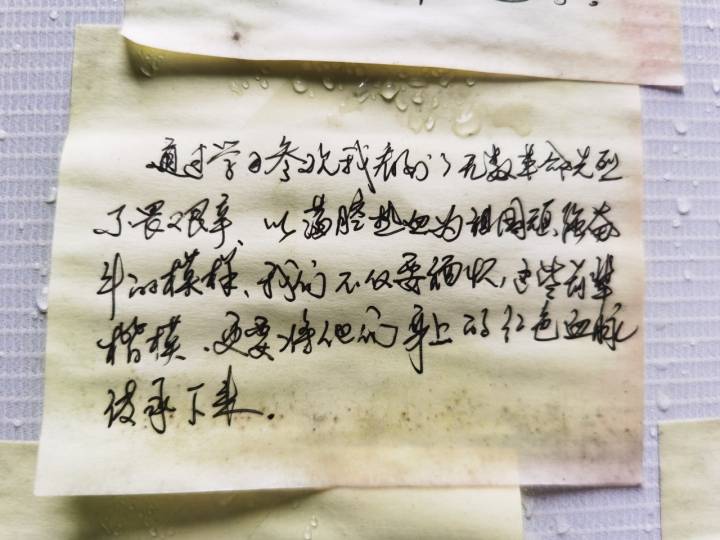 通过学习参观我看到了无数革命先烈
不畏艰辛、以满腔热血为祖国顽强奋
斗的模样、我们不仅要缅怀，这些前辈
楷模、更要将他们身上的红色血脉
传承下来.